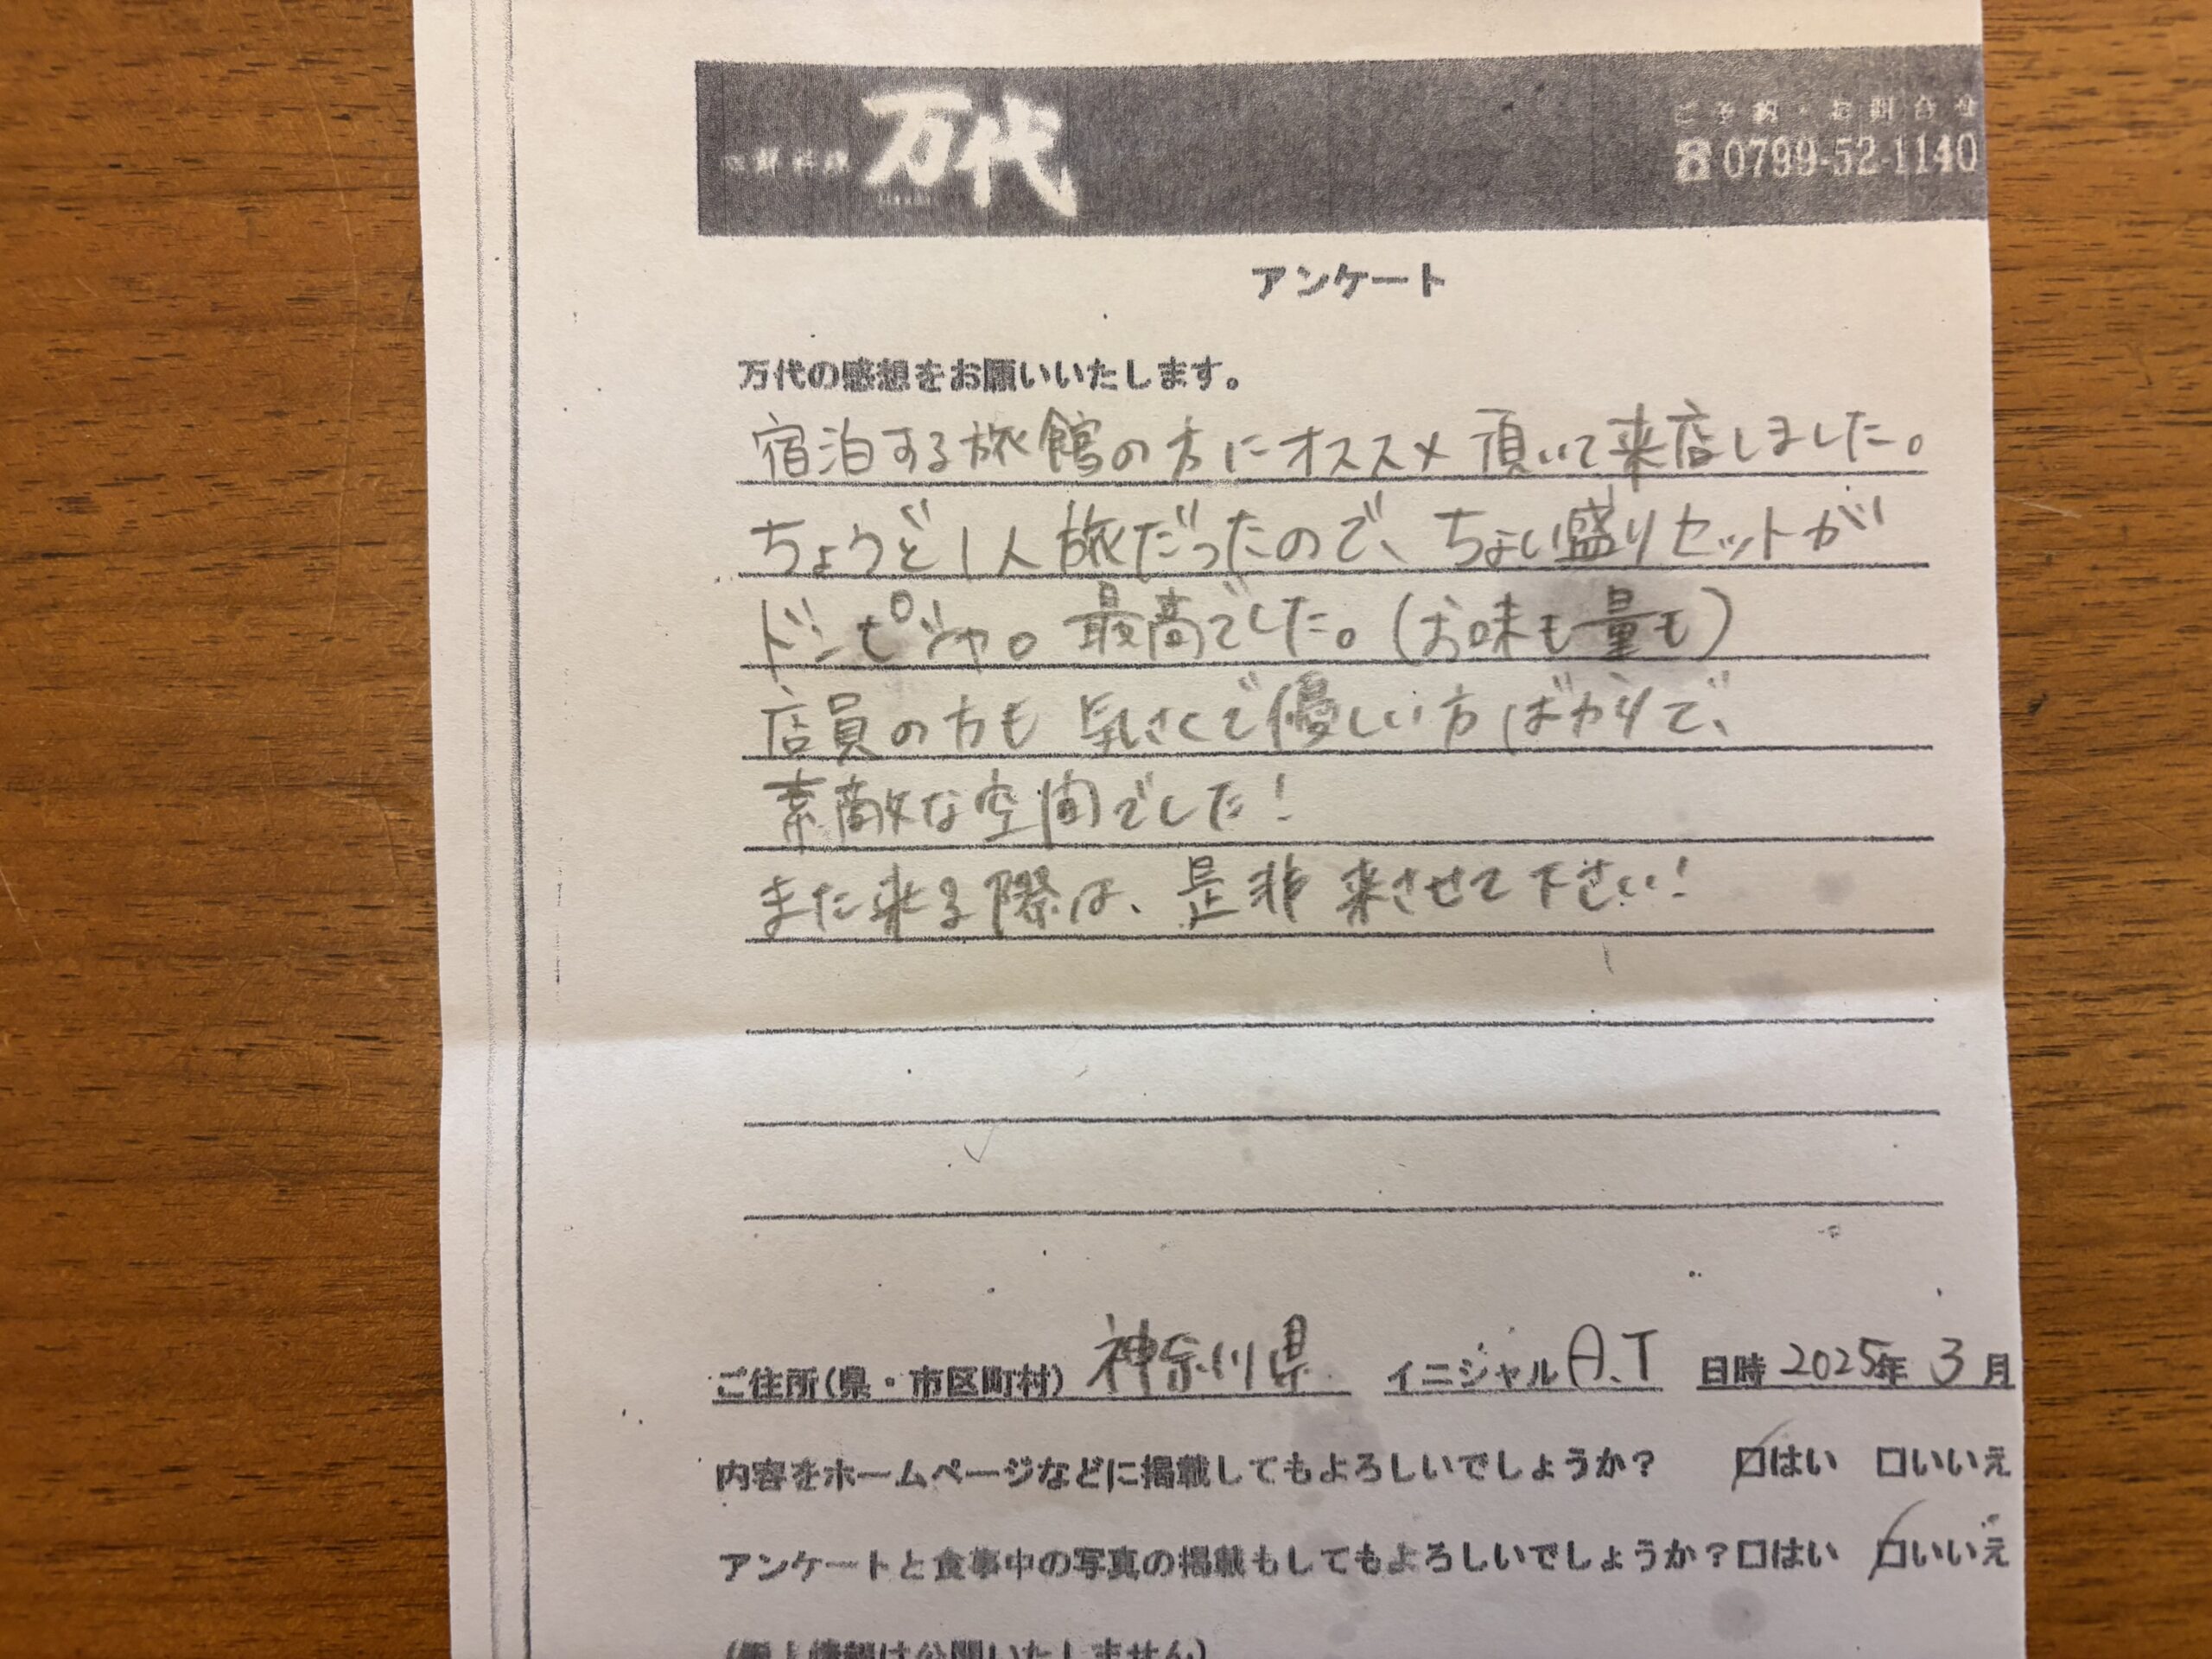 万代
ご予約・お問合せ
☎0799-52-1140
アンケート
万代の感想をお願いいたします。
宿泊する旅館の方にオススメ頂いて来店しました。
ちょうど1人旅だったので、ちょい盛りセットが
ドンピシャ。最高でした。(お味も量も)
店員の方も気さくで優しい方ばかりで、
素敵な空間でした!
また来る際は、是非来させて下さい!
ご住所(県・市区町村) 神奈川県 イニシャル A.T 日時 2025年 3月
内容をホームページなどに掲載してもよろしいでしょうか? ☑はい □いいえ
アンケートと食事中の写真の掲載もしてもよろしいでしょうか?□はい ☑いいえ
(個人情報は公開いたしません)